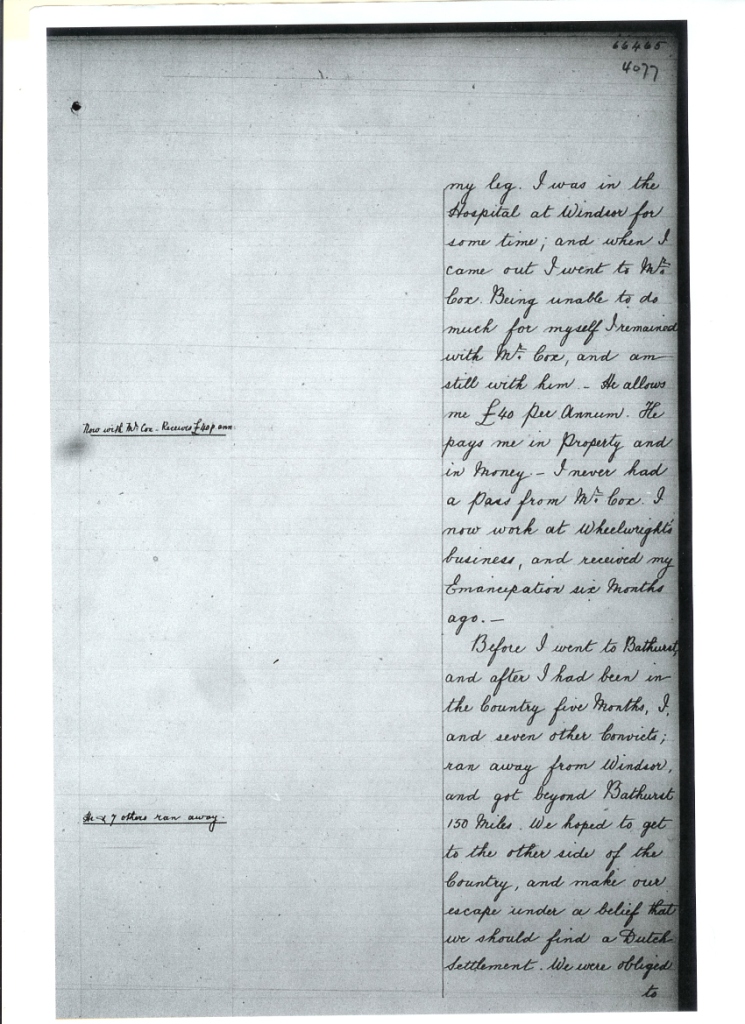 66465
4077
my leg. I was in the
Hospital at Windsor for
some time; and when I
came out I went to Mr.
Cox. Being unable to do
much for myself I remained
with Mr. Cox, and am
still with him. - He allows
me £40 Per Annum. He
Now with Mr Cox - Receives £40 p. ann.
pays me in Property and
in Money - I never had
a Pass from Mr. Cox. I
now work at Wheelwright's
business, and received my
Emancipation six Months
ago. -
Before I went to Bathurst,
and after I had been in
the Country five Months, I,
and seven other Convicts;
ran away from Windsor,
and got beyond Bathurst
He & 7 others ran away.
150 Miles. We hoped to get
to the other side of the
Country, and make our
escape under a belief that
we should find a Dutch
Settlement. We were obliged
to